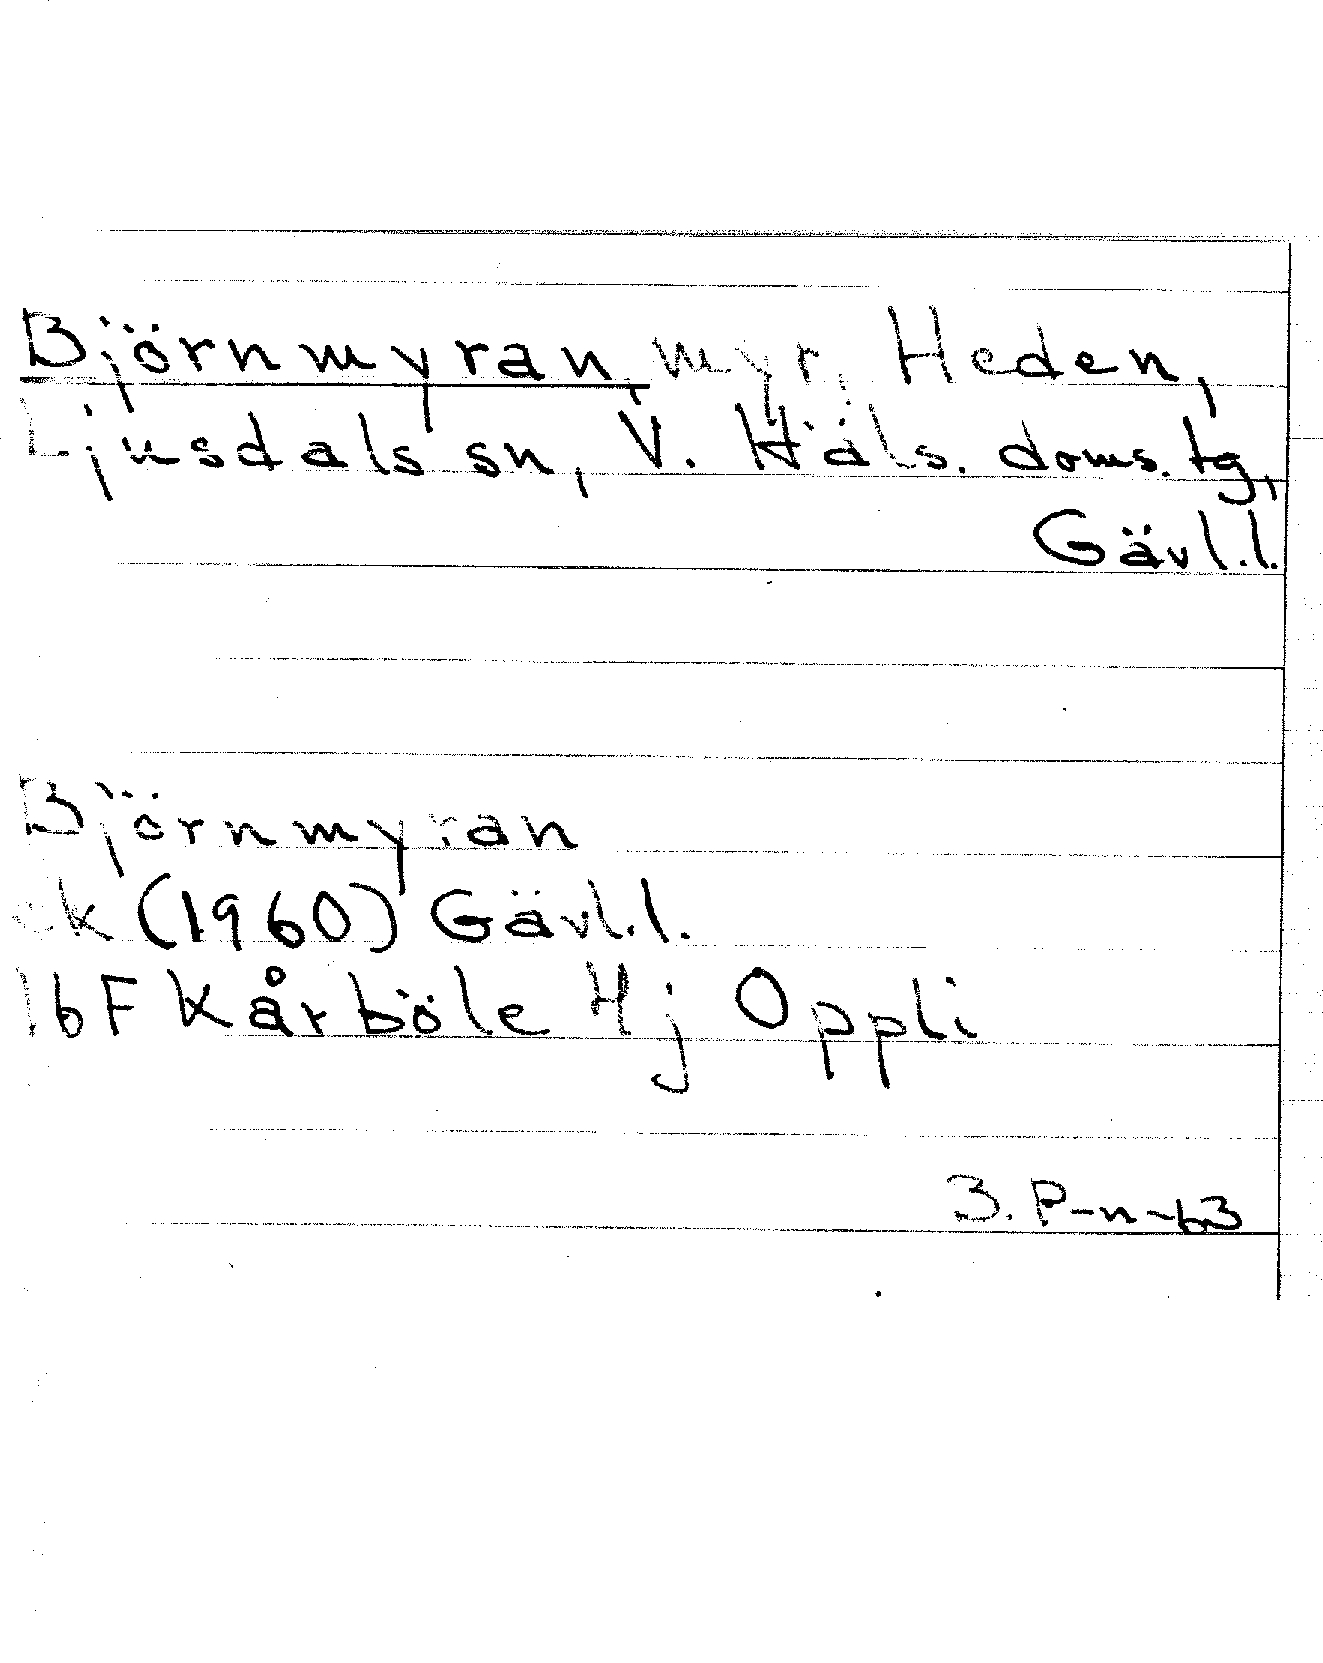 Björnmyran, myr, Heden,
Ljusdals sn, V. Häls. doms. tg,
Gävl.l.
Björnmyran
ek (1960) Gävl.l.
16F Kårböle 4j Oppli
3. P-n-63